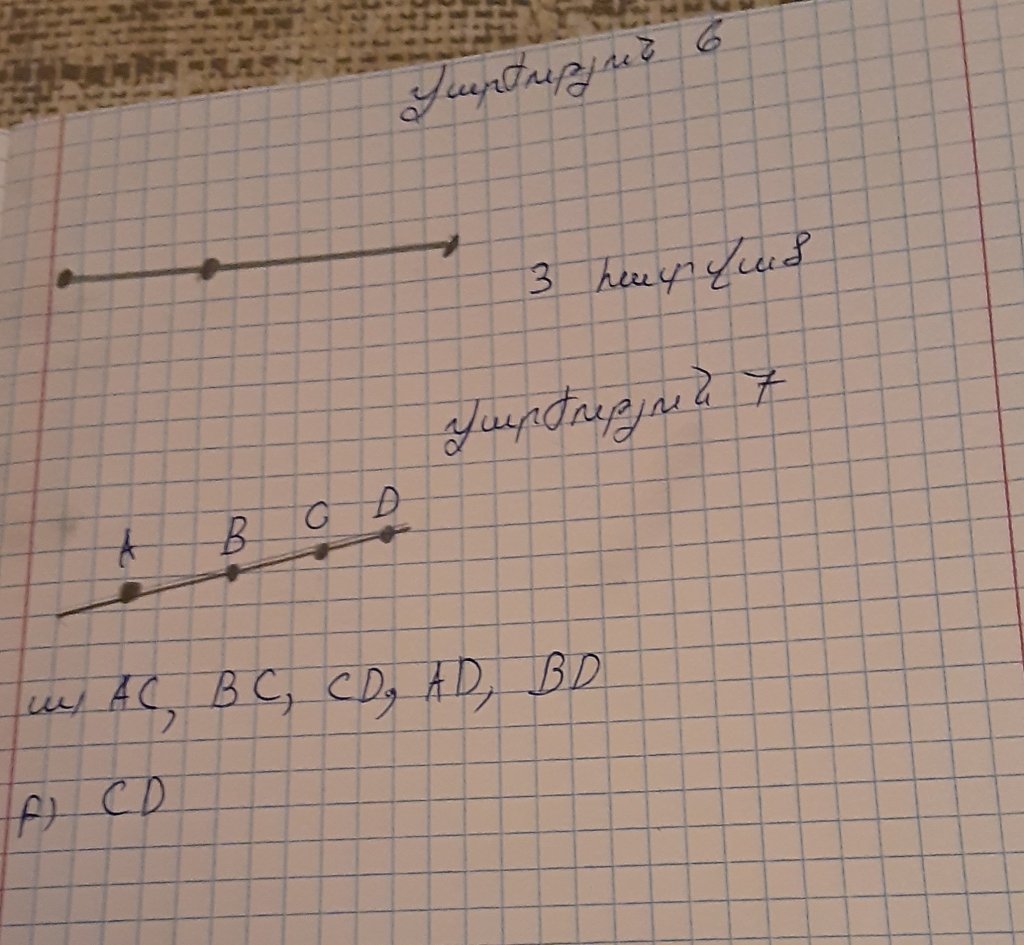 Վարժություն 6
3 հատված
Վարժություն 7
A B C D
ա) AC, BC, CD, AD, BD
բ) CD